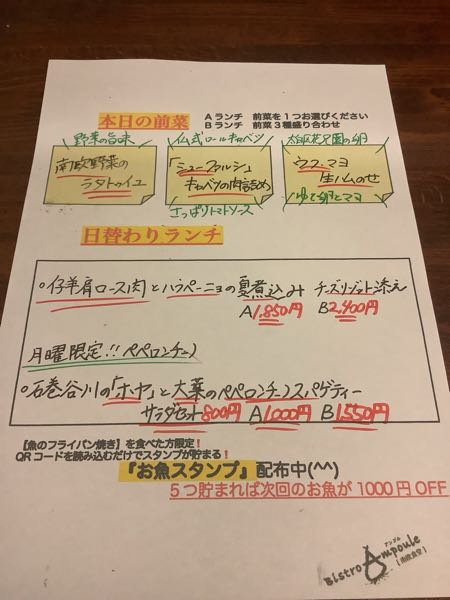 本日の前菜
Aランチ 前菜を1つお選びください
Bランチ 前菜3種盛り合わせ
野菜の旨味
南欧野菜の
ラタトゥイユ
仏式ロールキャベツ
「ミューファルシ」
キャベツの肉詰め
さっぱりトマトソース
花夕園の卵
ウフマヨ
生ハムのせ
ゆで卵とマヨ
日替わりランチ
○仔羊肩ロース肉とハラペーニョの夏煮込み チーズリゾット添え
A1,850円 B2,400円
月曜限定!!! ペペロンチーノ
○石巻谷川の「ホヤ」と大葉のペペロンチーノスパゲティー
サラダセット800円 A1000円 B1550円
【魚のフライパン焼き】を食べた方限定!
QRコードを読み込むだけでスタンプが貯まる!
『お魚スタンプ』配布中(^^)
5つ貯まれば次回のお魚が1000円OFF
アンプル
Bistro Ampoule